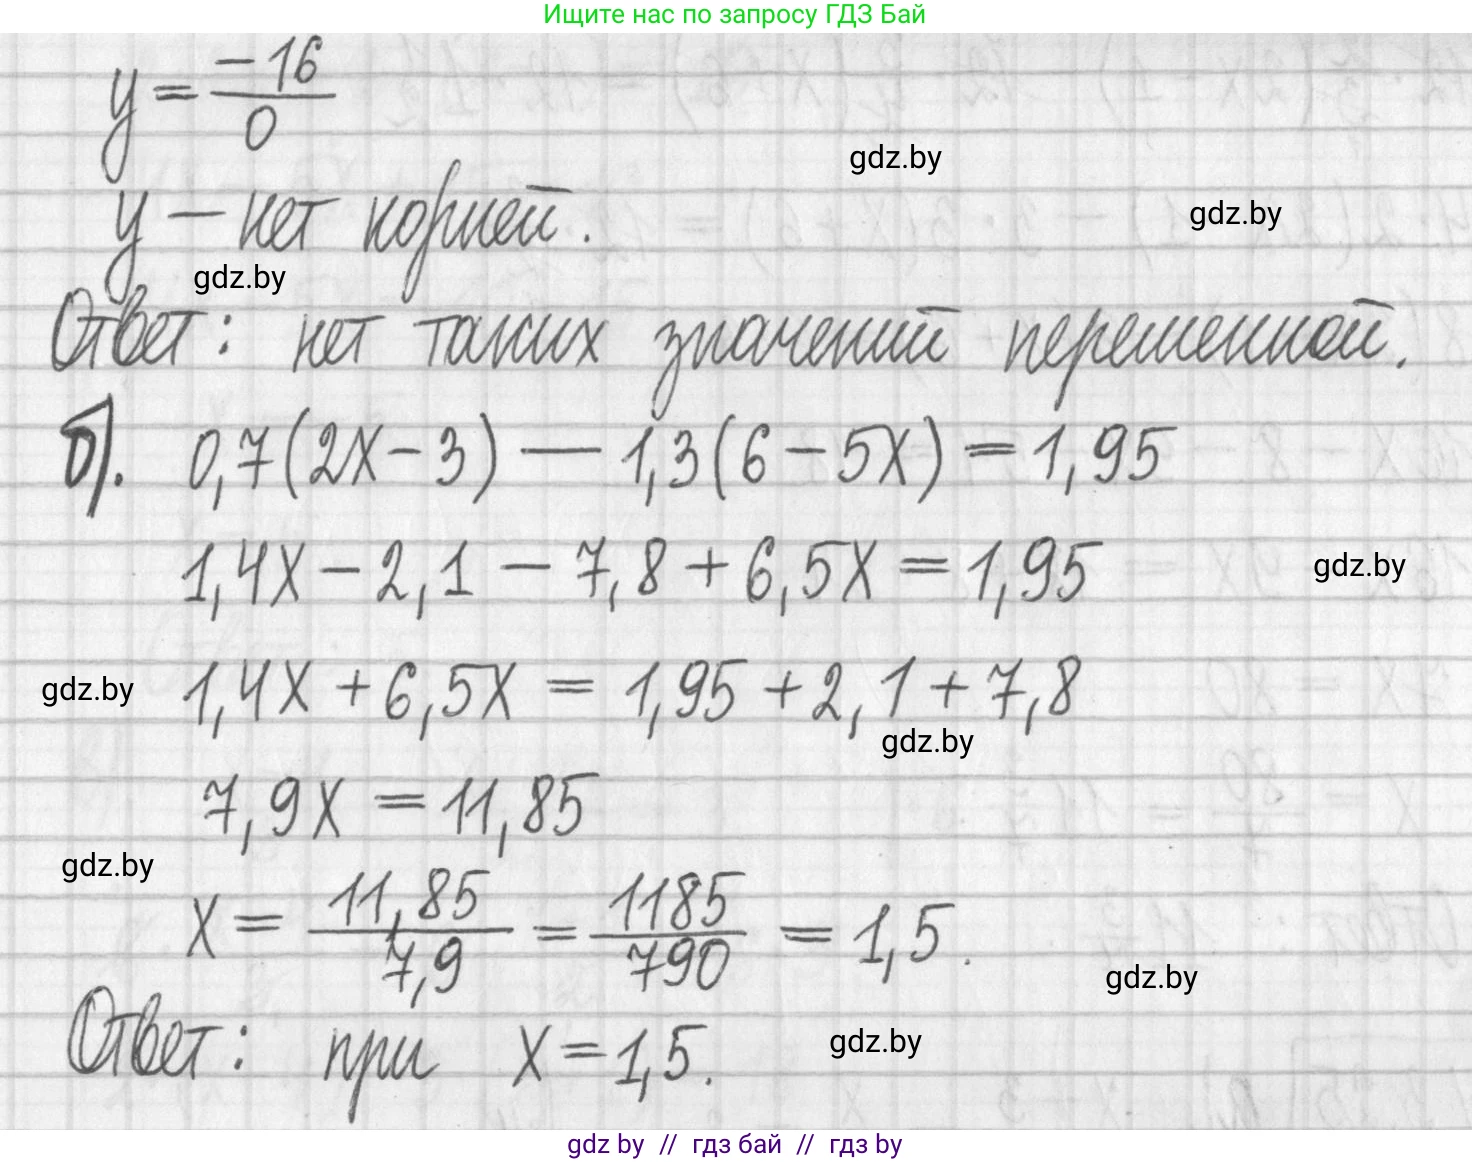 Ищите нас по запросу ГДЗ Бай
y = -16/0
gdz.by
y — нет корней.
gdz.by
gdz.by
Ответ: нет таких значений переменной.
б). 0,7(2x - 3) - 1,3(6 - 5x) = 1,95
1,4x - 2,1 - 7,8 + 6,5x = 1,95
gdz.by
gdz.by
1,4x + 6,5x = 1,95 + 2,1 + 7,8
gdz.by
7,9x = 11,85
gdz.by
x = 11,85/7,9 = 1185/790 = 1,5.
gdz.by
Ответ: при x = 1,5.
gdz.by
gdz by // гдз бай // гдз by